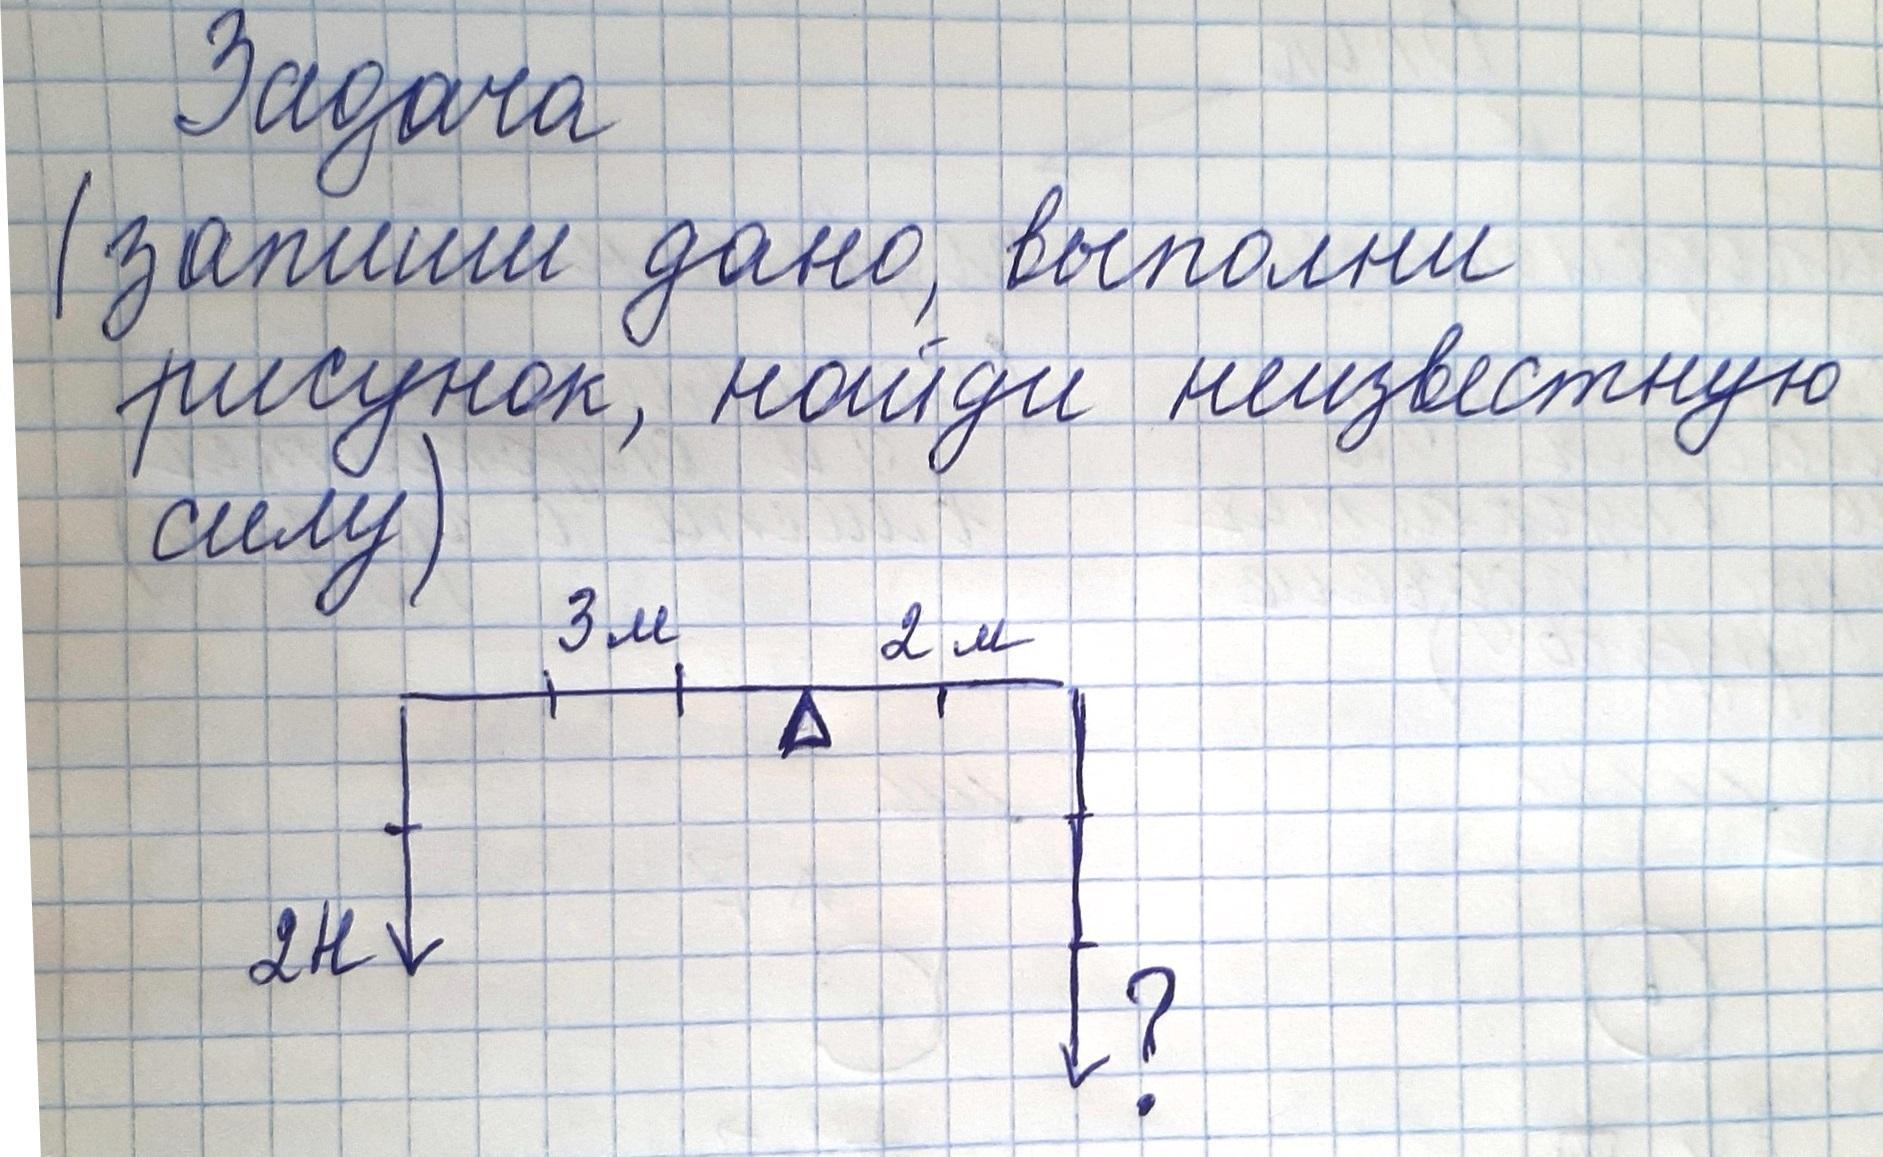 Задача
(запиши дано, выполни
рисунок, найди неизвестную
силу)
3м 2м
2Н
?